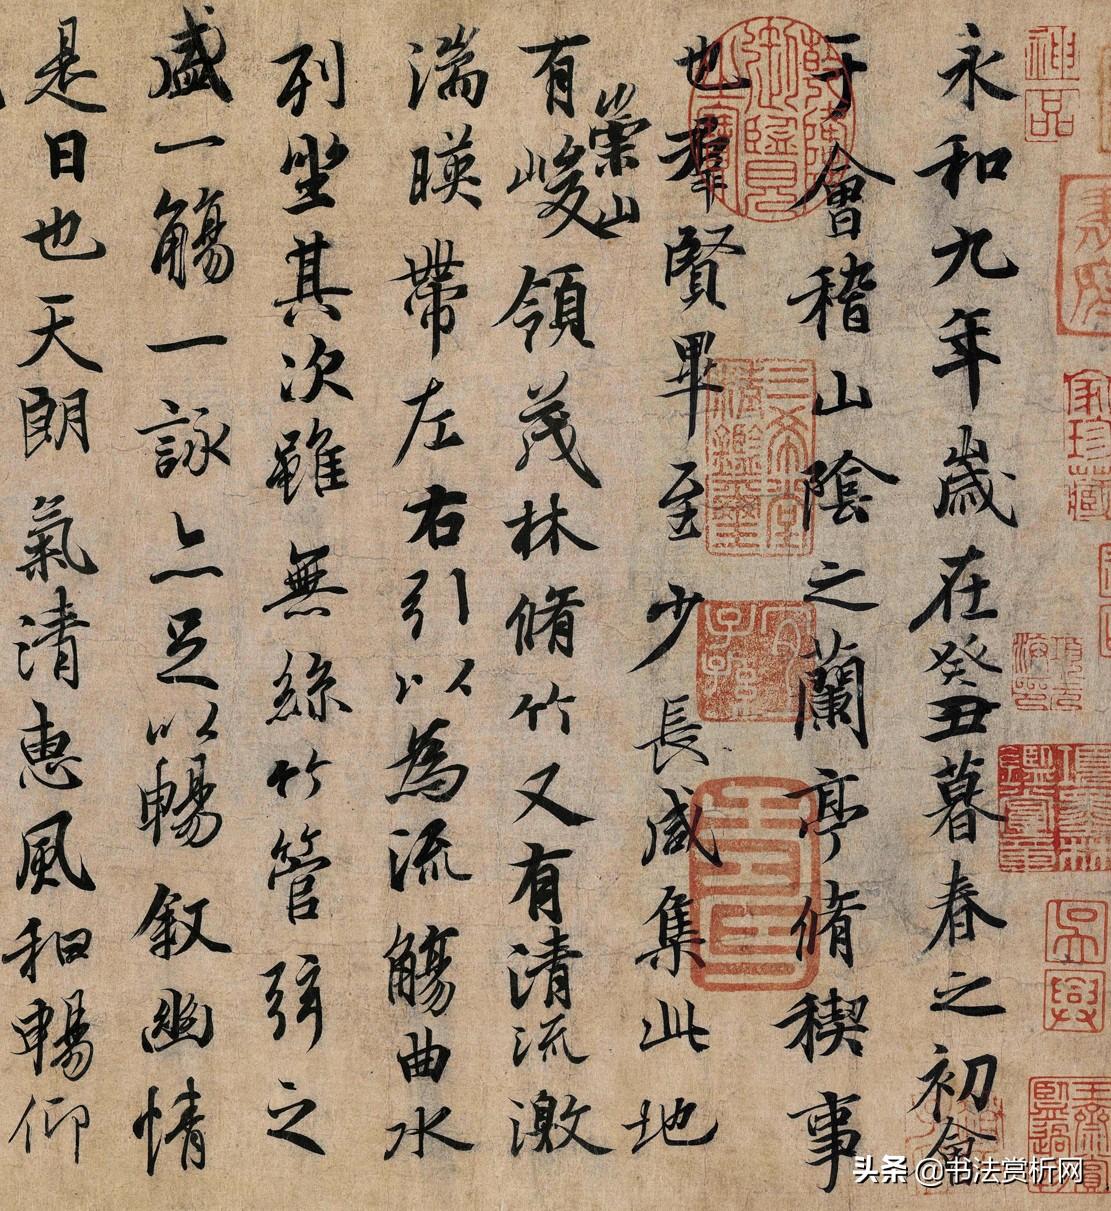 永和九年歲在癸丑暮春之初會
于會稽山陰之蘭亭脩稧事
也羣賢畢至少長咸集此地
有崇山峻領茂林脩竹又有清流激
湍暎帶左右引以為流觴曲水
列坐其次雖無絲竹管弦之
盛一觴一詠亦足以暢敘幽情
是日也天朗氣清惠風和暢仰
神品
三希堂精鑑璽
宜子孫
吳興
头条 @书法赏析网